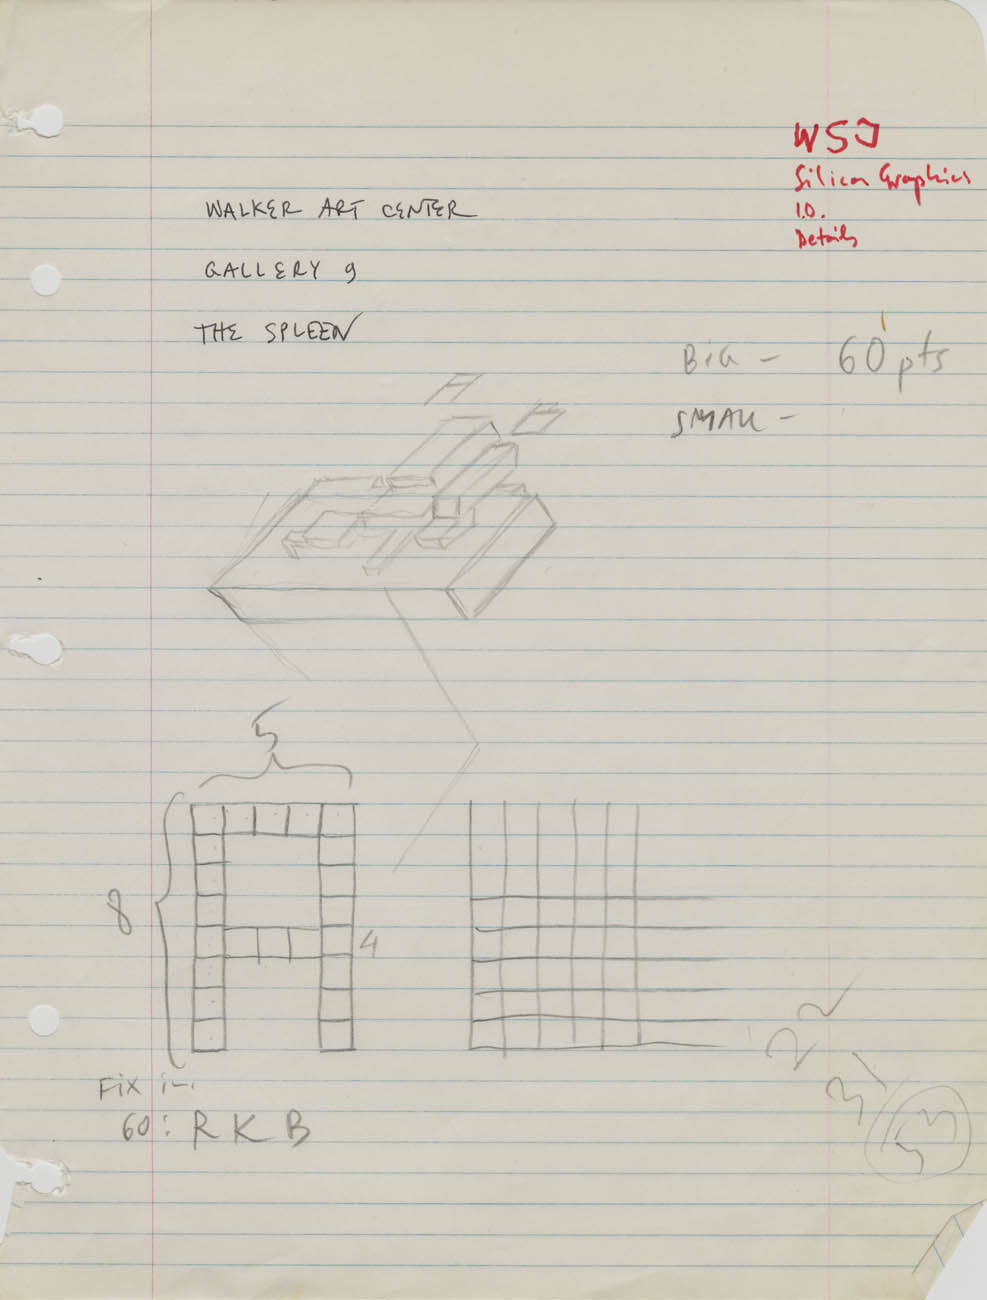 WSJ
Silicon Graphics
I.D.
Details
WALKER ART CENTER
GALLERY 9
THE SPLEEN
BIG - 60 pts
SMALL -
5
8
4
22
31
53
FIX in
60: R K B